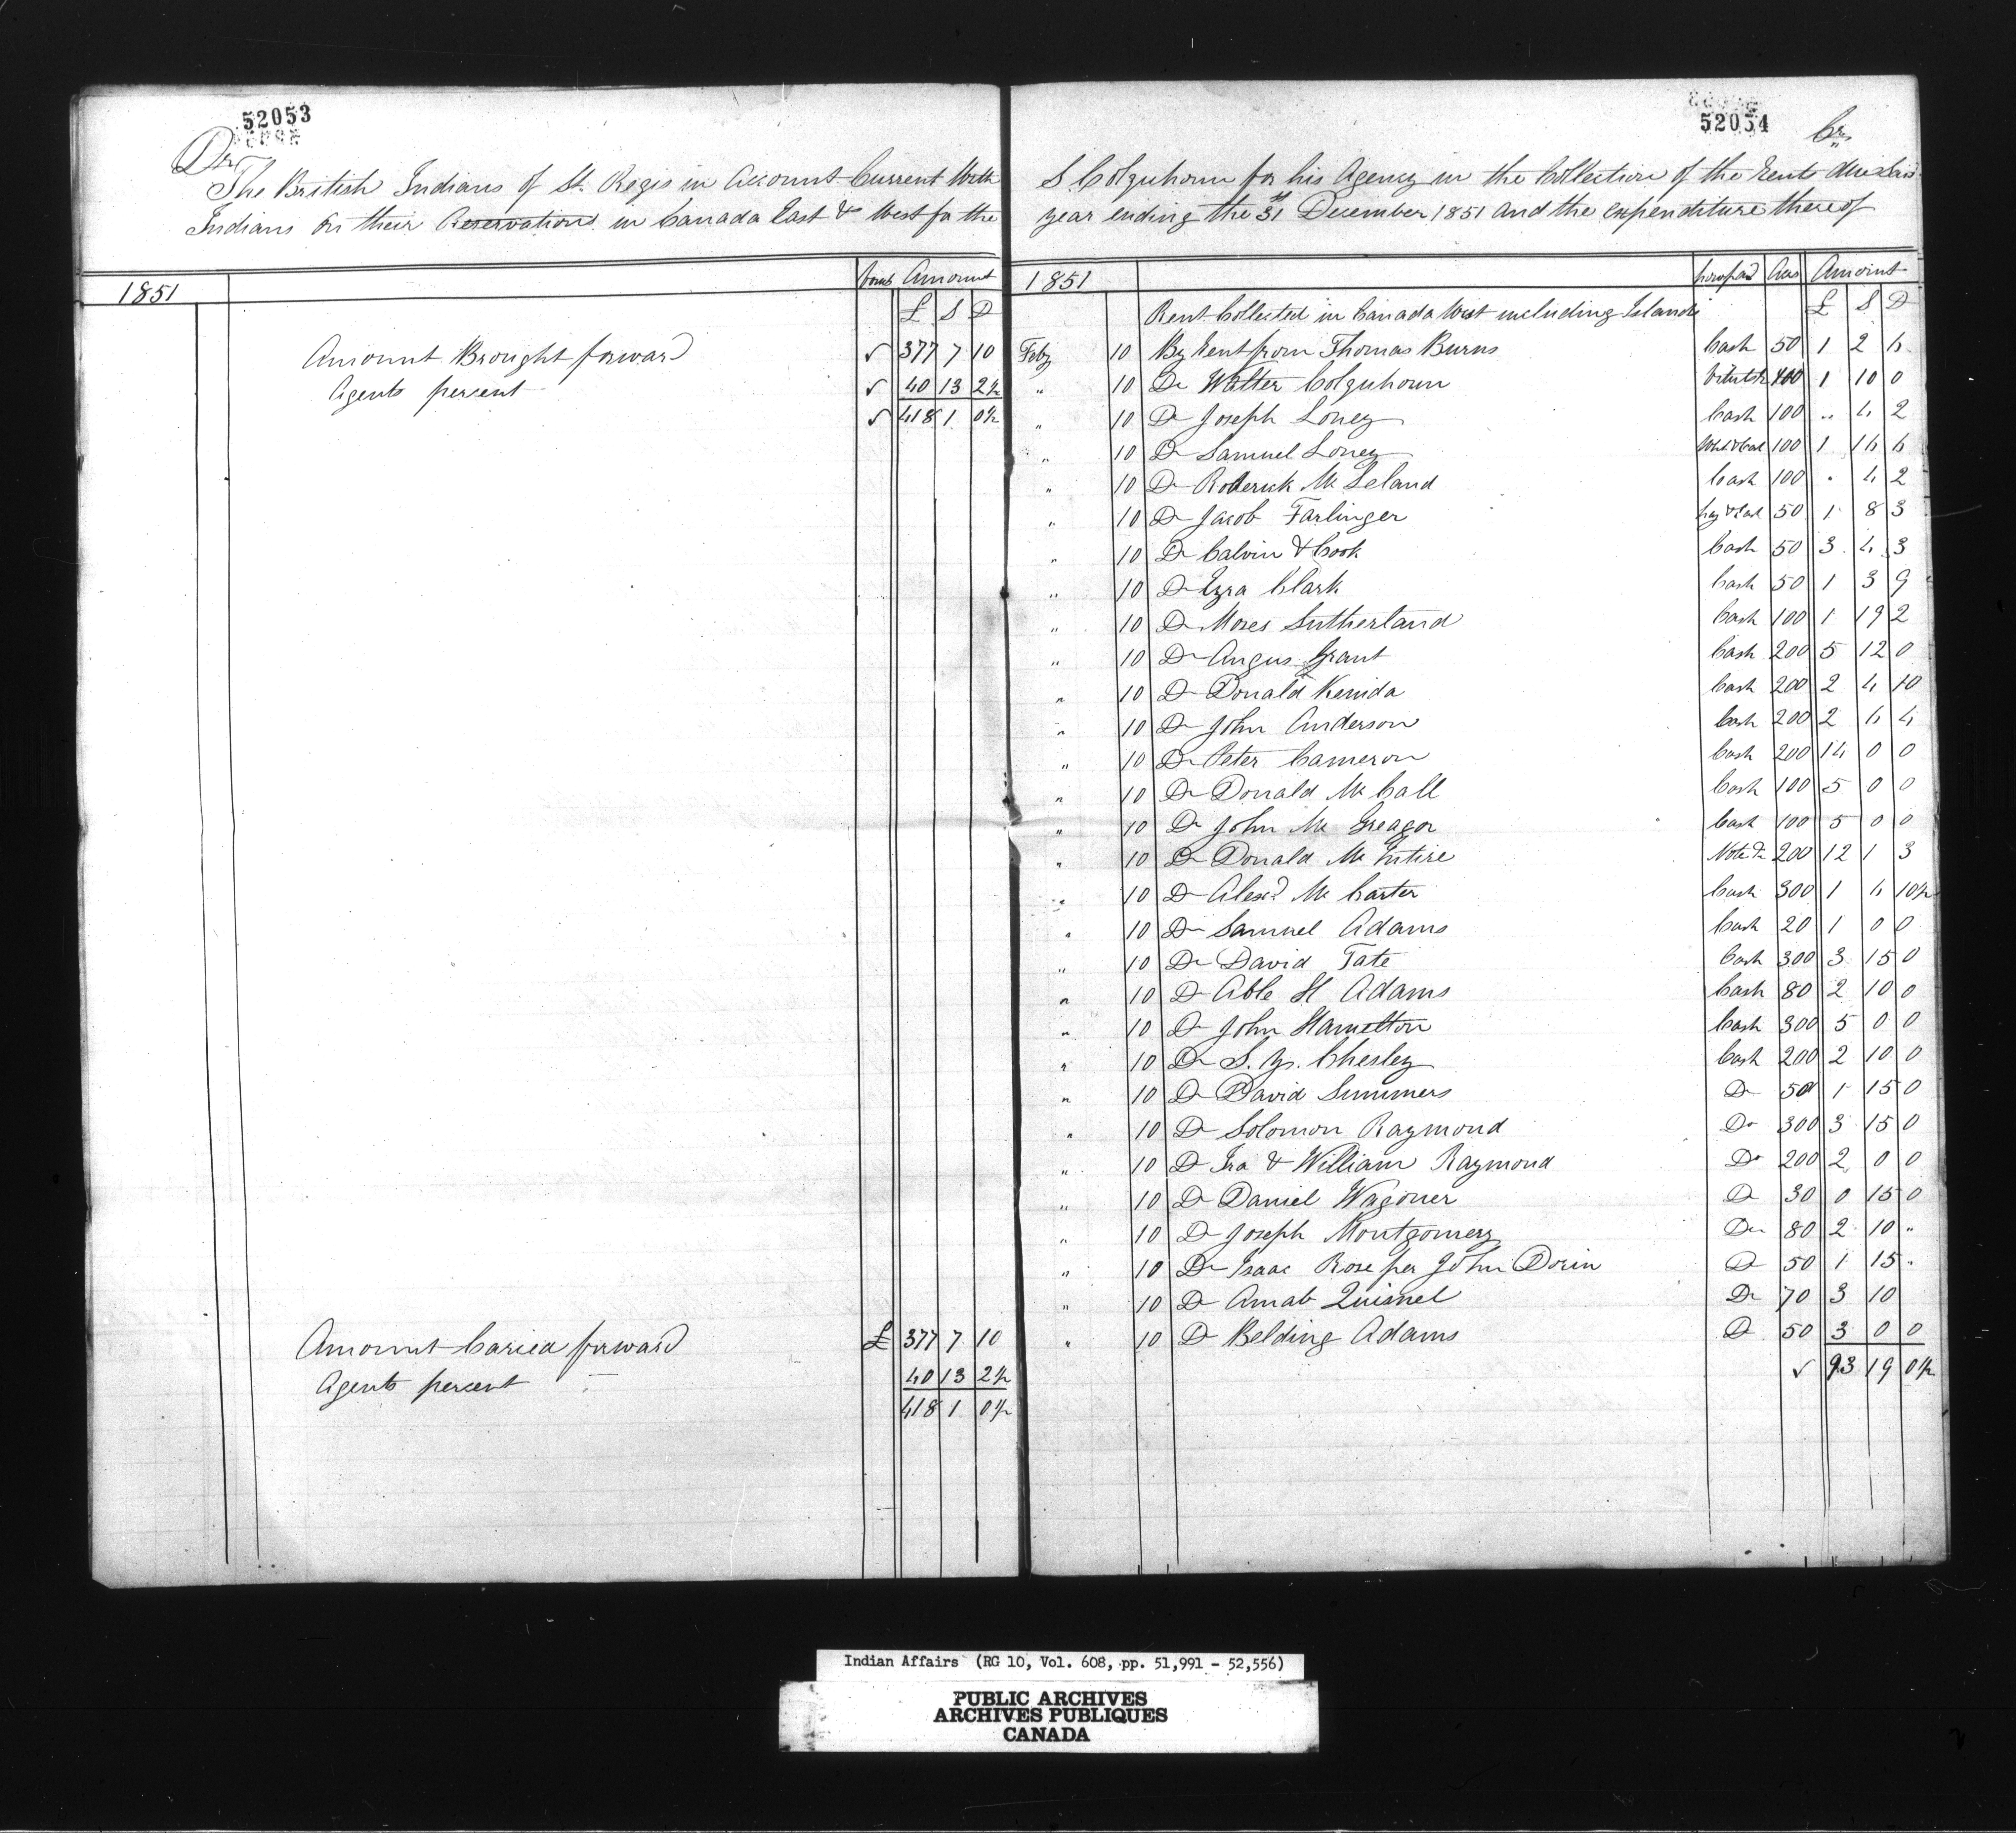 52053
Dr
The British Indians of St. Regis in Account Current With
Indians on their Reservation in Canada East & West for the
1851 Amount
£ S D
Amount Brought forward √ 377 7 10
Agents percent √ 40 13 2½
√ 418 1 0½
Amount Caried forward £ 377 7 10
Agents percent 40 13 2½
418 1 0½
52054
Cr
S Colquhoun for his Agency in the Collection of the rents due said
year ending the 31st December 1851 and the expenditure thereof
1851 how paid Acs Amount
Rent Collected in Canada West including Islands £ S D
Feby 10 By Rent from Thomas Burns Cash 50 1 2 6
" 10 Do Walter Colquhoun 400 1 10 0
" 10 Do Joseph Loney Cash 100 " 4 2
" 10 Do Samuel Loney 100 1 16 6
" 10 Do Roderick Mc Leland Cash 100 " 4 2
" 10 Do Jacob Farlinger 50 1 8 3
" 10 Do Calvin & Cook Cash 50 3 4 3
" 10 Do Ezra Clark Cash 50 1 3 9
" 10 Do Moses Sutherland Cash 100 1 19 2
" 10 Do Angus Grant Cash 200 5 12 0
" 10 Do Donald Kenida Cash 200 2 4 10
" 10 Do John Anderson Cash 200 2 4 4
" 10 Do Peter Cameron Cash 200 14 0 0
" 10 Do Donald Mc Call Cash 100 5 0 0
" 10 Do John Mc Greagor Cash 100 5 0 0
" 10 Do Donald Mc Intire Note Do 200 12 1 3
" 10 Do Alexd Mc Carter Cash 300 1 4 10½
" 10 Do Samuel Adams Cash 20 1 0 0
" 10 Do David Tate Cash 300 3 15 0
" 10 Do Able H Adams Cash 80 2 10 0
" 10 Do John Hamelton Cash 300 5 0 0
" 10 Do S. Y. Chesley Cash 200 2 10 0
" 10 Do David Summers Do 50 1 15 0
" 10 Do Solomon Raymond Do 300 3 15 0
" 10 Do Ira & William Raymond Do 200 2 0 0
" 10 Do Daniel Wagoner Do 30 0 15 0
" 10 Do Joseph Montgomery Do 80 2 10 "
" 10 Do Isaac Rose per John Dorin Do 50 1 15 "
" 10 Do Amab Quisnel Do 70 3 10
" 10 Do Belding Adams Do 50 3 0 0
√ 93 19 0½
Indian Affairs (RG 10, Vol. 608, pp. 51,991 - 52,556)
PUBLIC ARCHIVES
ARCHIVES PUBLIQUES
CANADA